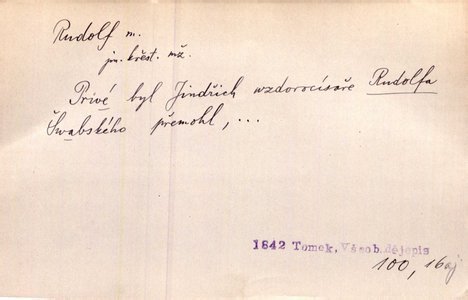 Rudolf m.
jm. křest. mž.
Prvé byl Jindřich vzdorocísaře Rudolfa
Švabského přemohl, ...
1842 Tomek, Všeob. dějepis
100, 16